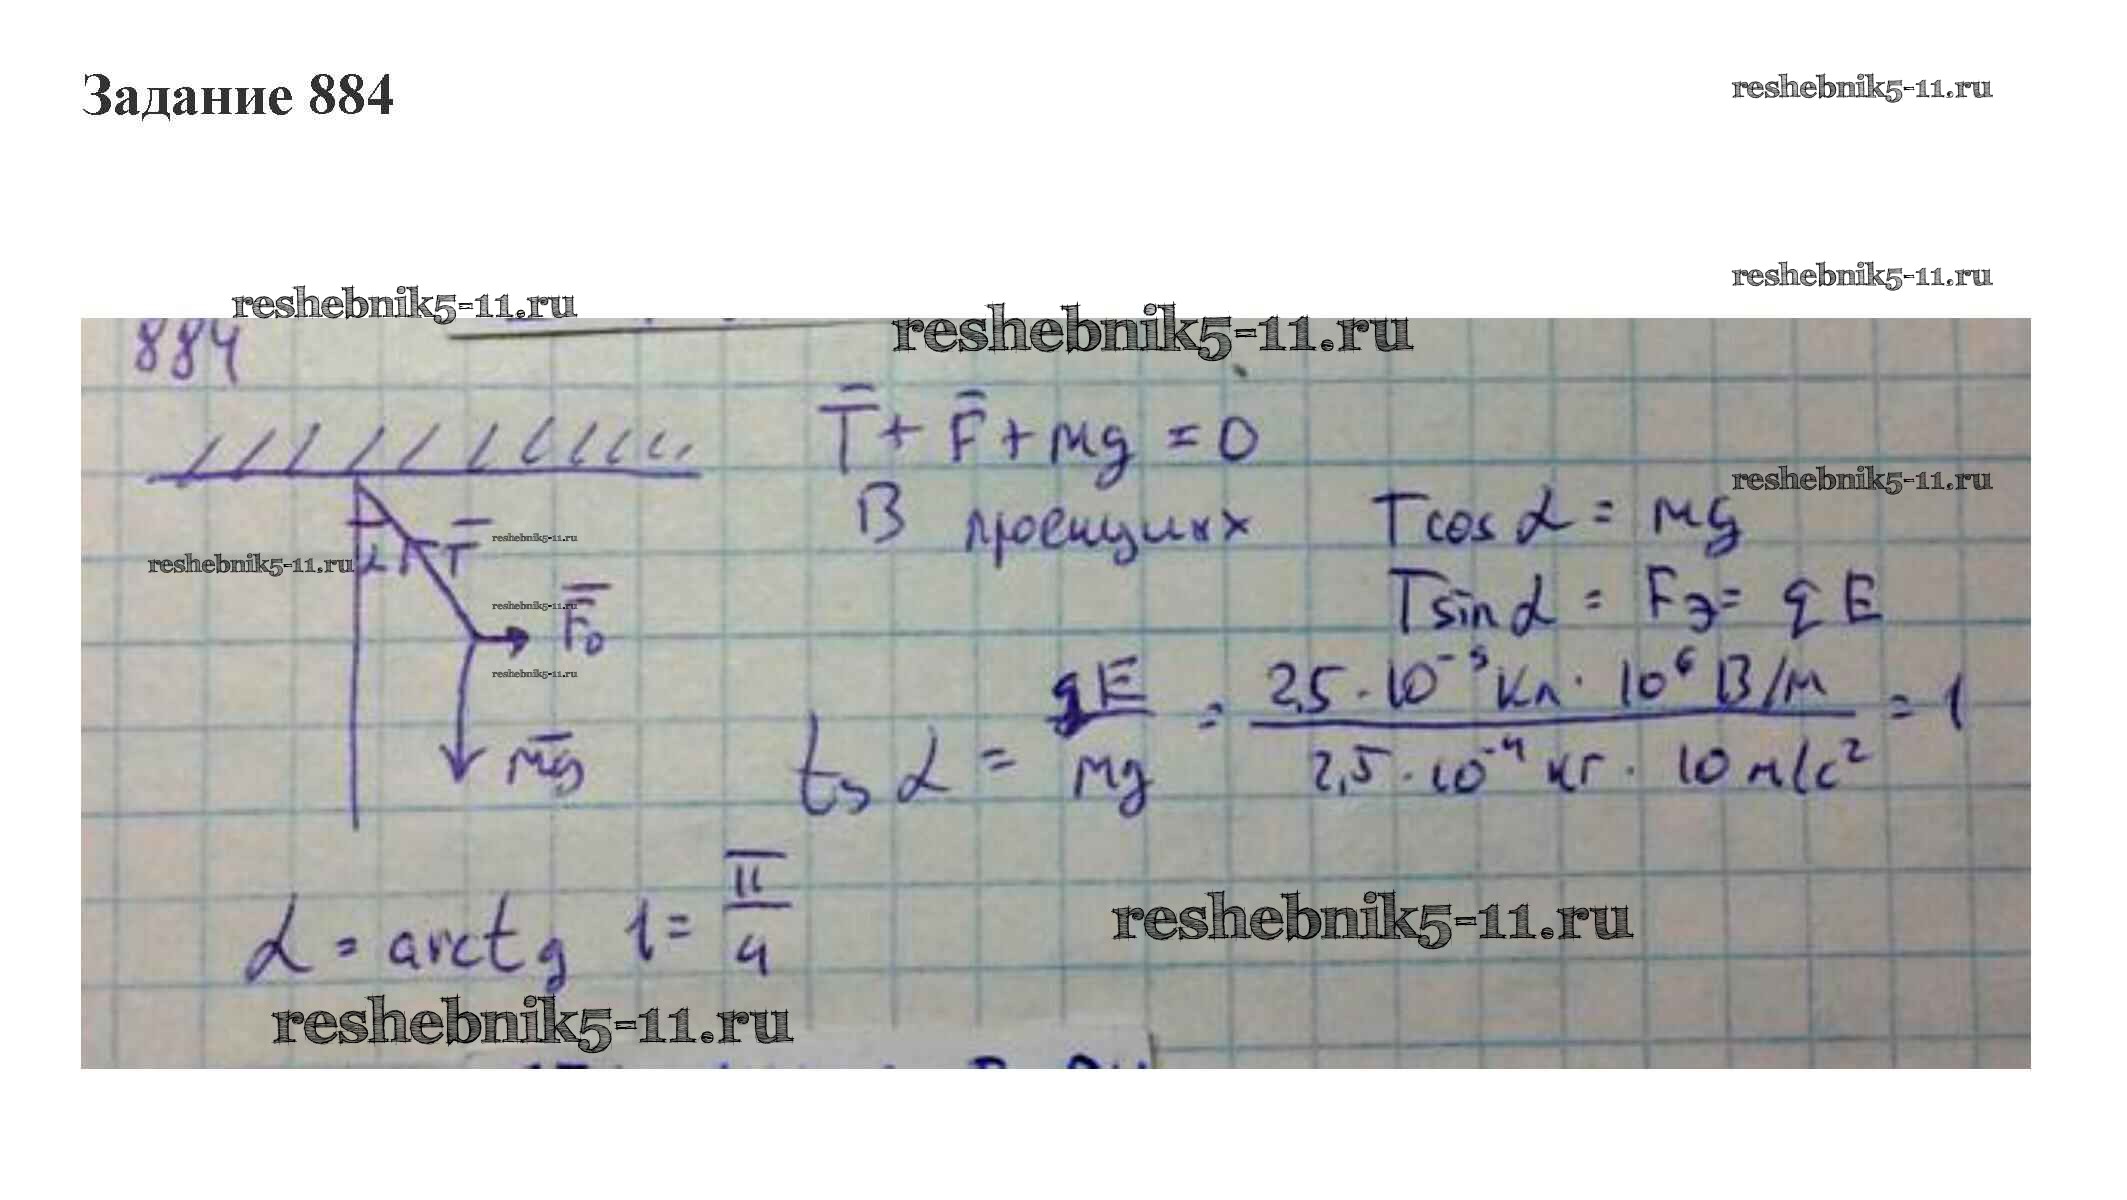 Задание 884
reshebnik5-11.ru
reshebnik5-11.ru
reshebnik5-11.ru
reshebnik5-11.ru
884
T̅ + F̅ + mg = 0
reshebnik5-11.ru
В проекциях T cos α = mg
reshebnik5-11.ru
reshebnik5-11.ru
α T̅
T sin α = Fэ = qE
reshebnik5-11.ru
F̅э
reshebnik5-11.ru
mg̅
tg α = qE / mg = 2,5 · 10⁻⁹ Кл · 10⁶ В/м / 2,5 · 10⁻⁴ кг · 10 м/с² = 1
α = arctg 1 = π / 4
reshebnik5-11.ru
reshebnik5-11.ru